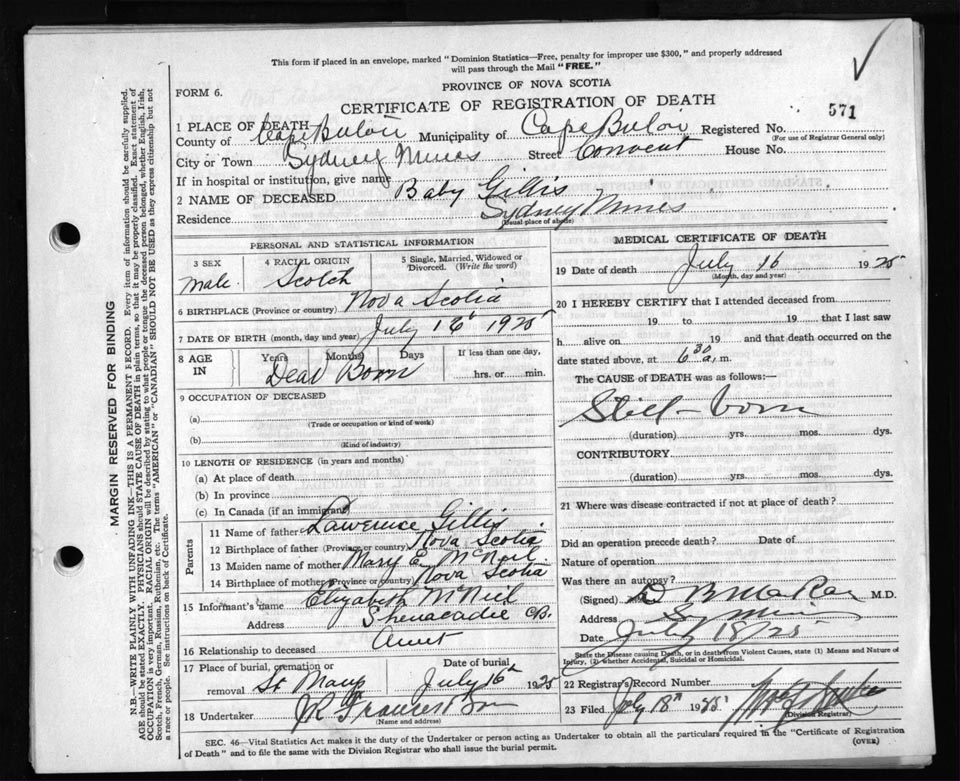 This form if placed in an envelope, marked "Dominion Statistics—Free, penalty for improper use $300," and properly addressed
will pass through the Mail "FREE."
PROVINCE OF NOVA SCOTIA
FORM 6.
CERTIFICATE OF REGISTRATION OF DEATH
571
1 PLACE OF DEATH
County of Cape Breton Municipality of Cape Breton Registered No.
(For use of Registrar General only)
City or Town Sydney Mines Street Convent House No.
If in hospital or institution, give name
2 NAME OF DECEASED Baby Gillis
Residence Sydney Mines
(Usual place of abode)
PERSONAL AND STATISTICAL INFORMATION
3 SEX 4 RACIAL ORIGIN 5 Single, Married, Widowed or
Divorced. (Write the word)
male Scotch
6 BIRTHPLACE (Province or country) Nova Scotia
7 DATE OF BIRTH (month, day and year) July 16 1925
8 AGE IN Years Months Days If less than one day,
Dead Born hrs. or min.
9 OCCUPATION OF DECEASED
(a)
(Trade or occupation or kind of work)
(b)
(Kind of industry)
10 LENGTH OF RESIDENCE (in years and months)
(a) At place of death
(b) In province
(c) In Canada (if an immigrant)
Parents
11 Name of father Lawrence Gillis
12 Birthplace of father (Province or country) Nova Scotia
13 Maiden name of mother Mary E. McNeil
14 Birthplace of mother (Province or country) Nova Scotia
15 Informant's name Elizabeth McNeil
Address Shenacadie C.B.
16 Relationship to deceased Aunt
17 Place of burial, cremation or Date of burial
removal St Marys July 16th 1925
18 Undertaker J R
(Name and address)
MEDICAL CERTIFICATE OF DEATH
19 Date of death July 16 1925
(Month, day and year)
20 I HEREBY CERTIFY that I attended deceased from
19 to 19 that I last saw
h alive on 19 and that death occurred on the
date stated above, at 6 30 a.m.
The CAUSE OF DEATH was as follows:—
Still-born
(duration) yrs. mos. dys.
CONTRIBUTORY
(duration) yrs. mos. dys.
21 Where was disease contracted if not at place of death?
Did an operation precede death? Date of
Nature of operation
Was there an autopsy?
(Signed) M.D.
Address S. Mines
Date July 18/25
State the Disease causing Death, or in death from Violent Causes, state (1) Means and Nature of
Injury, (2) whether Accidental, Suicidal or Homicidal.
22 Registrar's Record Number
23 Filed July 18th 1925
(Division Registrar)
SEC. 46—Vital Statistics Act makes it the duty of the Undertaker or person acting as Undertaker to obtain all the particulars required in the "Certificate of Registration
of Death" and to file the same with the Division Registrar who shall issue the burial permit. (OVER)
MARGIN RESERVED FOR BINDING
N.B.—WRITE PLAINLY WITH UNFADING INK—THIS IS A PERMANENT RECORD. Every item of information should be carefully supplied.
AGE should be stated EXACTLY. PHYSICIANS should STATE CAUSE OF DEATH in plain terms, so that it may be properly classified. Exact statement of
OCCUPATION is very important. RACIAL ORIGIN will be described by stating to what people or tongue the deceased person belonged, whether English, Irish,
Scotch, French, German, Russian, Ruthenian, etc. The terms "AMERICAN" or "CANADIAN" SHOULD NOT BE USED as they express citizenship but not
a race or people. See instructions on back of Certificate.